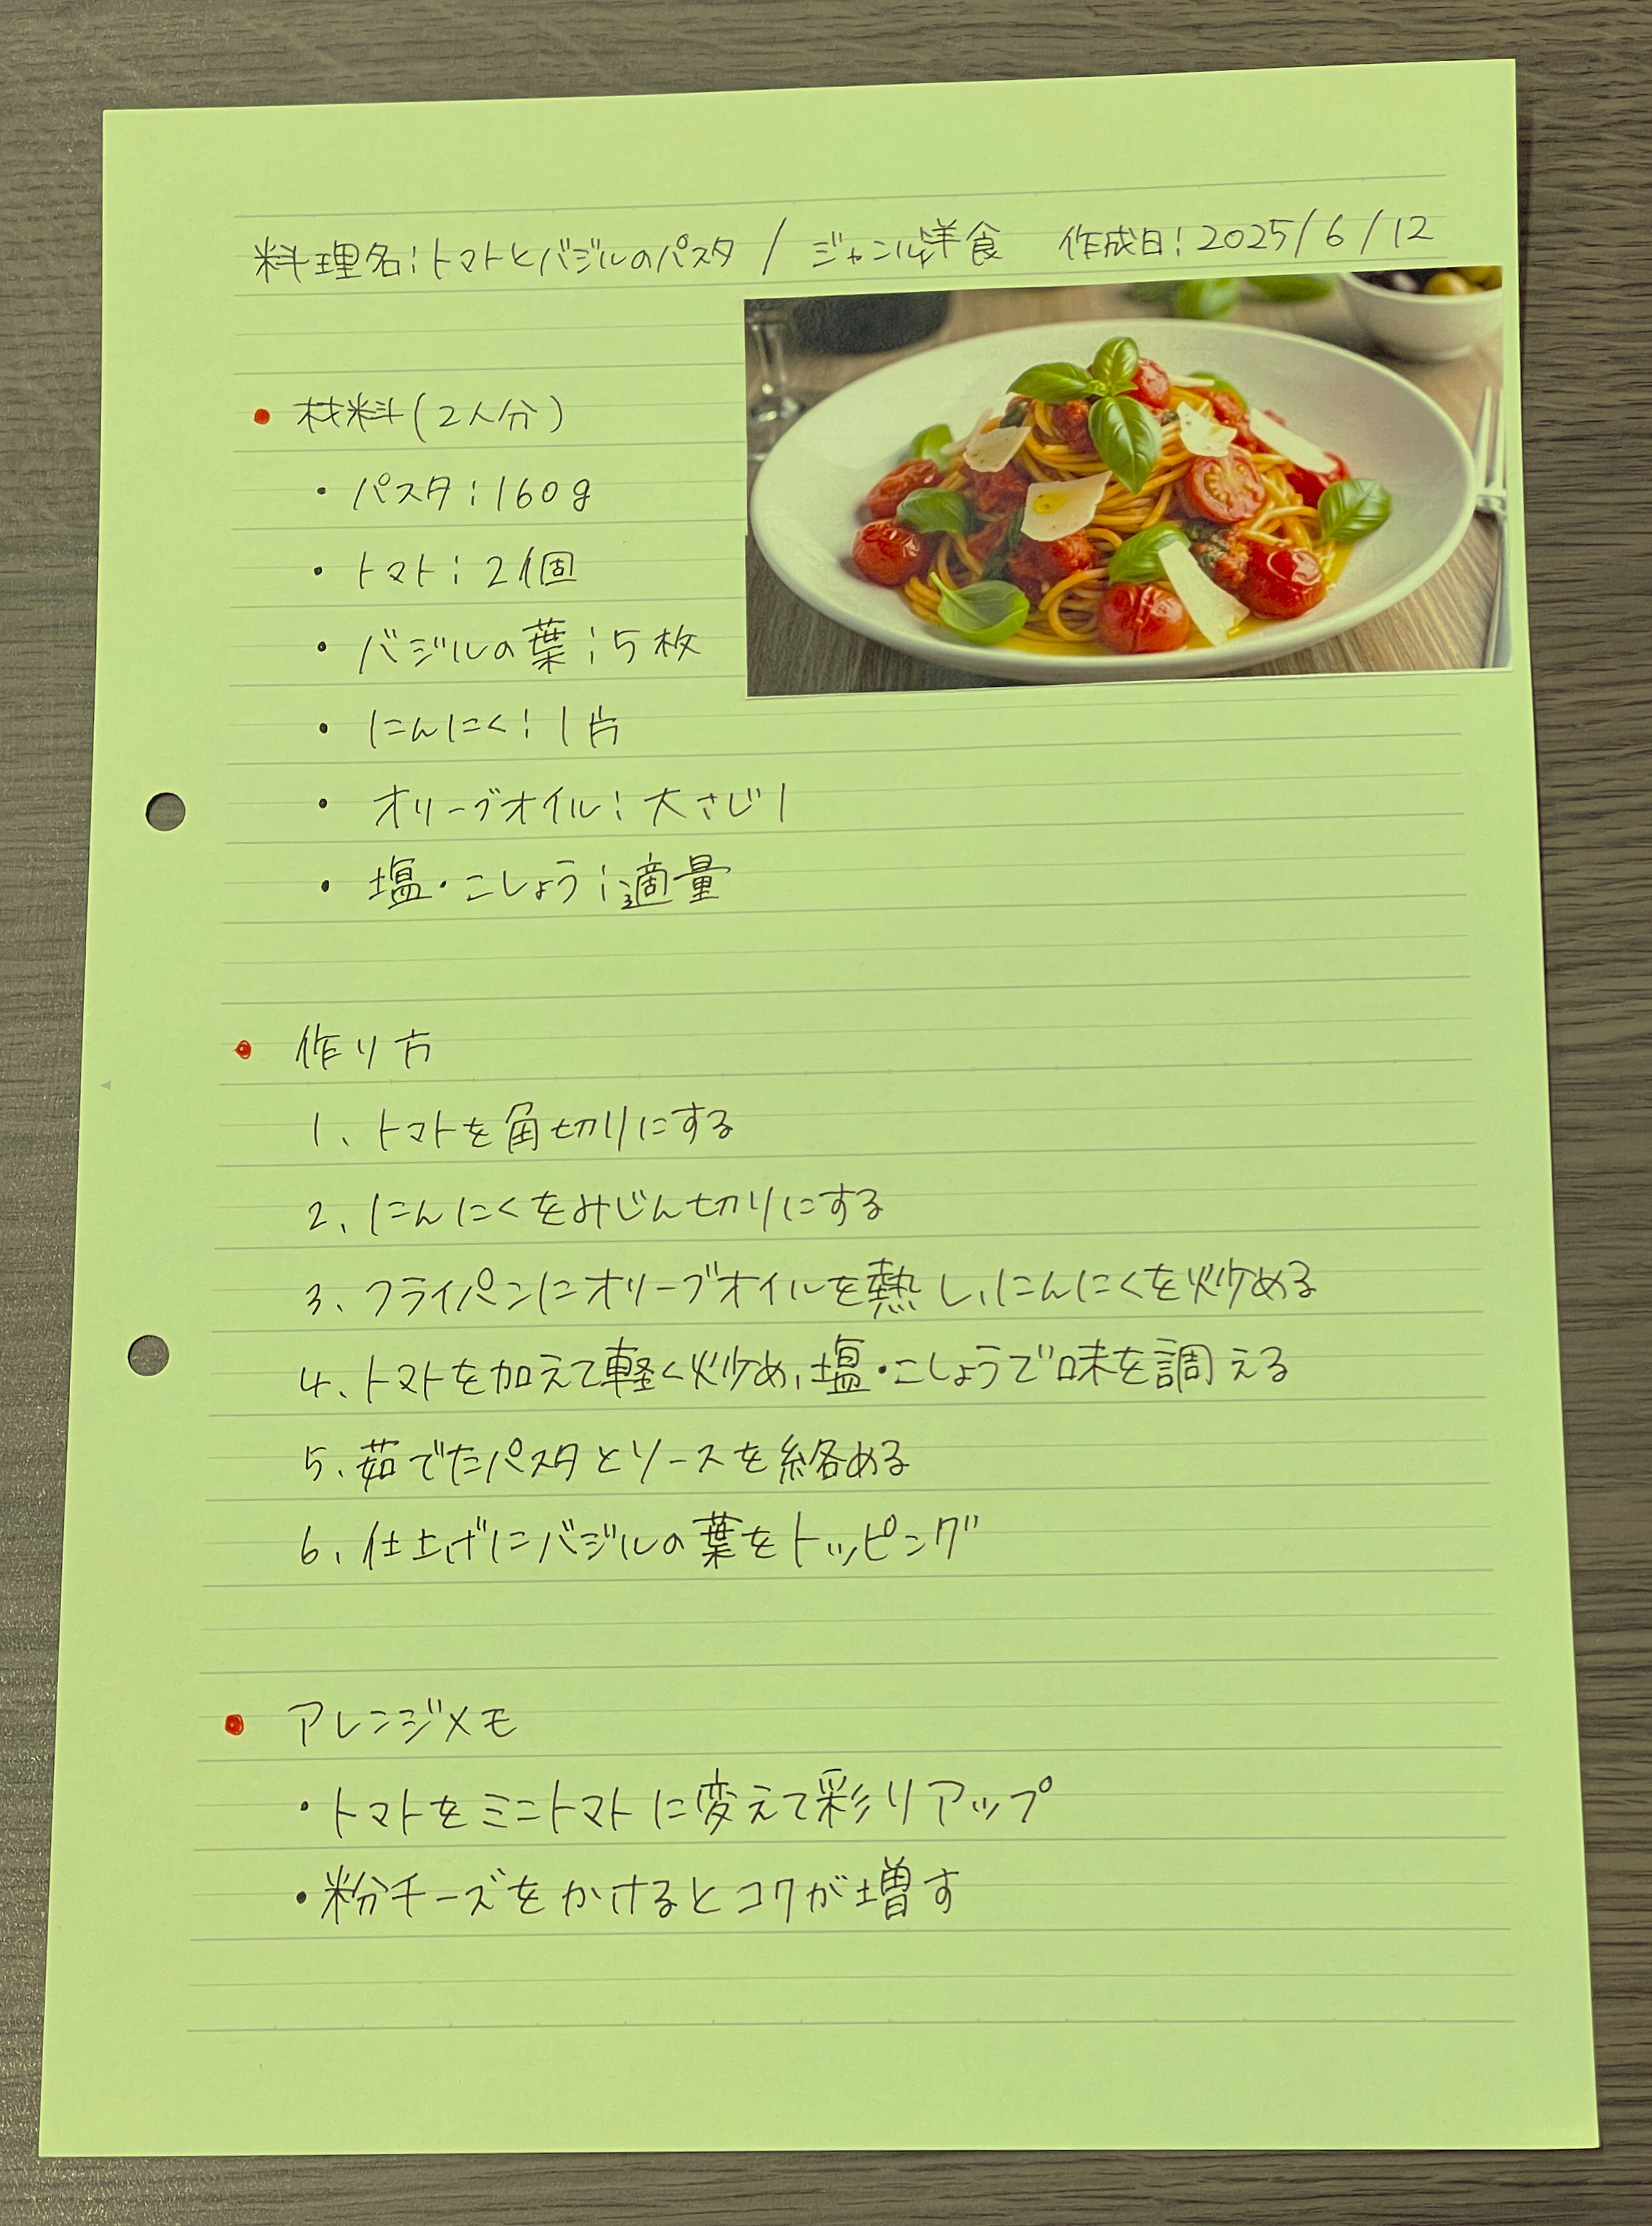 料理名:トマトとバジルのパスタ / ジャンル:洋食 作成日:2025/6/12
• 材料(2人分)
・パスタ:160g
・トマト:2個
・バジルの葉:5枚
・にんにく:1片
・オリーブオイル:大さじ1
・塩・こしょう:適量
• 作り方
1、トマトを角切りにする
2、にんにくをみじん切りにする
3、フライパンにオリーブオイルを熱し、にんにくを炒める
4、トマトを加えて軽く炒め、塩・こしょうで味を調える
5、茹でたパスタとソースを絡める
6、仕上げにバジルの葉をトッピング
• アレンジメモ
・トマトをミニトマトに変えて彩りアップ
・粉チーズをかけるとコクが増す